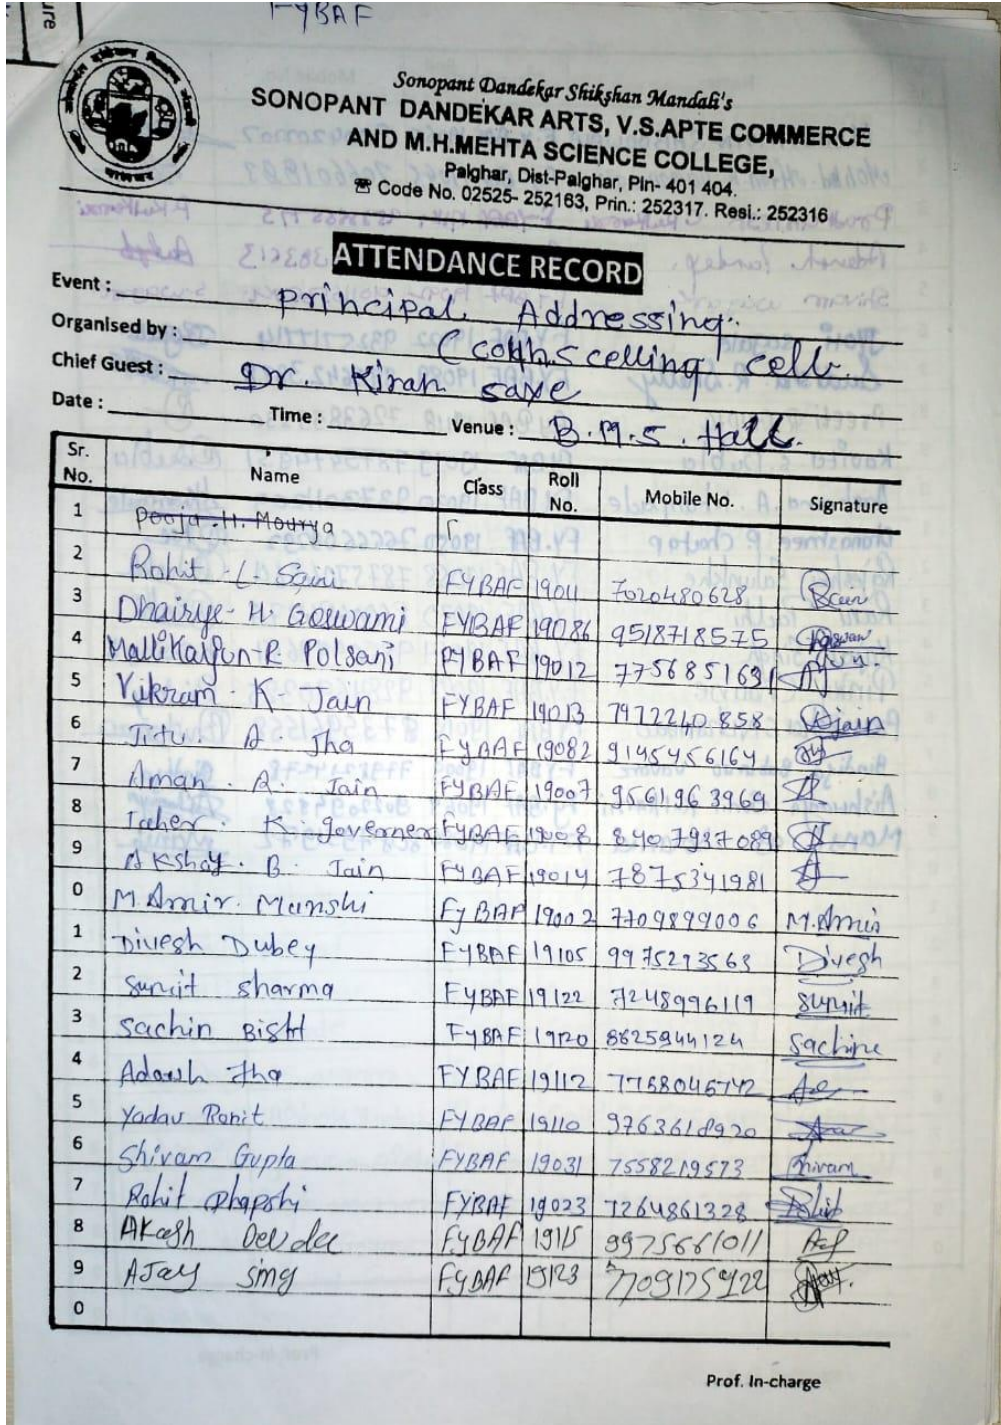 ure
FYBAF
Sonopant Dandekar Shikshan Mandali's
SONOPANT DANDEKAR ARTS, V.S.APTE COMMERCE
AND M.H.MEHTA SCIENCE COLLEGE,
Palghar, Dist-Palghar, Pin- 401 404.
☎ Code No. 02525- 252163, Prin.: 252317. Resi.: 252316
ATTENDANCE RECORD
Event : principal Addressing.
Organised by : (counscelling cell.
Chief Guest : Dr. Kiran saxe
Date : Time : Venue : B.M.S. Hall.
Sr. No. Name Class Roll No. Mobile No. Signature
1 Pooja .H. Mourya
2 Rohit . L. Saini FYBAF 19011 7020480628
3 Dhairye- H. Goswami FYBAF 19086 9518718575
4 Mallikarjun R Polsani FYBAF 19012 7756851631
5 Vikram . K . Jain FYBAF 19013 7972240858 Rjain
6 Jitu . A . Jha FYBAF 19082 9145456164
7 Aman . A . Jain FYBAF 19007 9561963969
8 Taher . K. governer FYBAF 19008 8407937089
9 Akshay . B . Jain FYBAF 19014 7875341981
0 M. Amir. Munshi FYBAF 19002 7709899006 M.Amir
1 Divesh Dubey FYBAF 19105 9975293563 Divesh
2 Sumit sharma FYBAF 19122 7248996119 Sumit
3 Sachin Bisht FYBAF 19120 8625944124 Sachine
4 Adarsh Jha FYBAF 19112 7768046742
5 Yadav Ronit FYBAF 19110 9763618920
6 Shivam Gupta FYBAF 19031 7558219573 Shivam
7 Rohit Dhapshi FYBAF 19023 7264861328 Rohit
8 AKash Devdee F.YBAF 19115 9975661011
9 AJay sing F.YBAF 19123 7709175922
0
Prof. In-charge